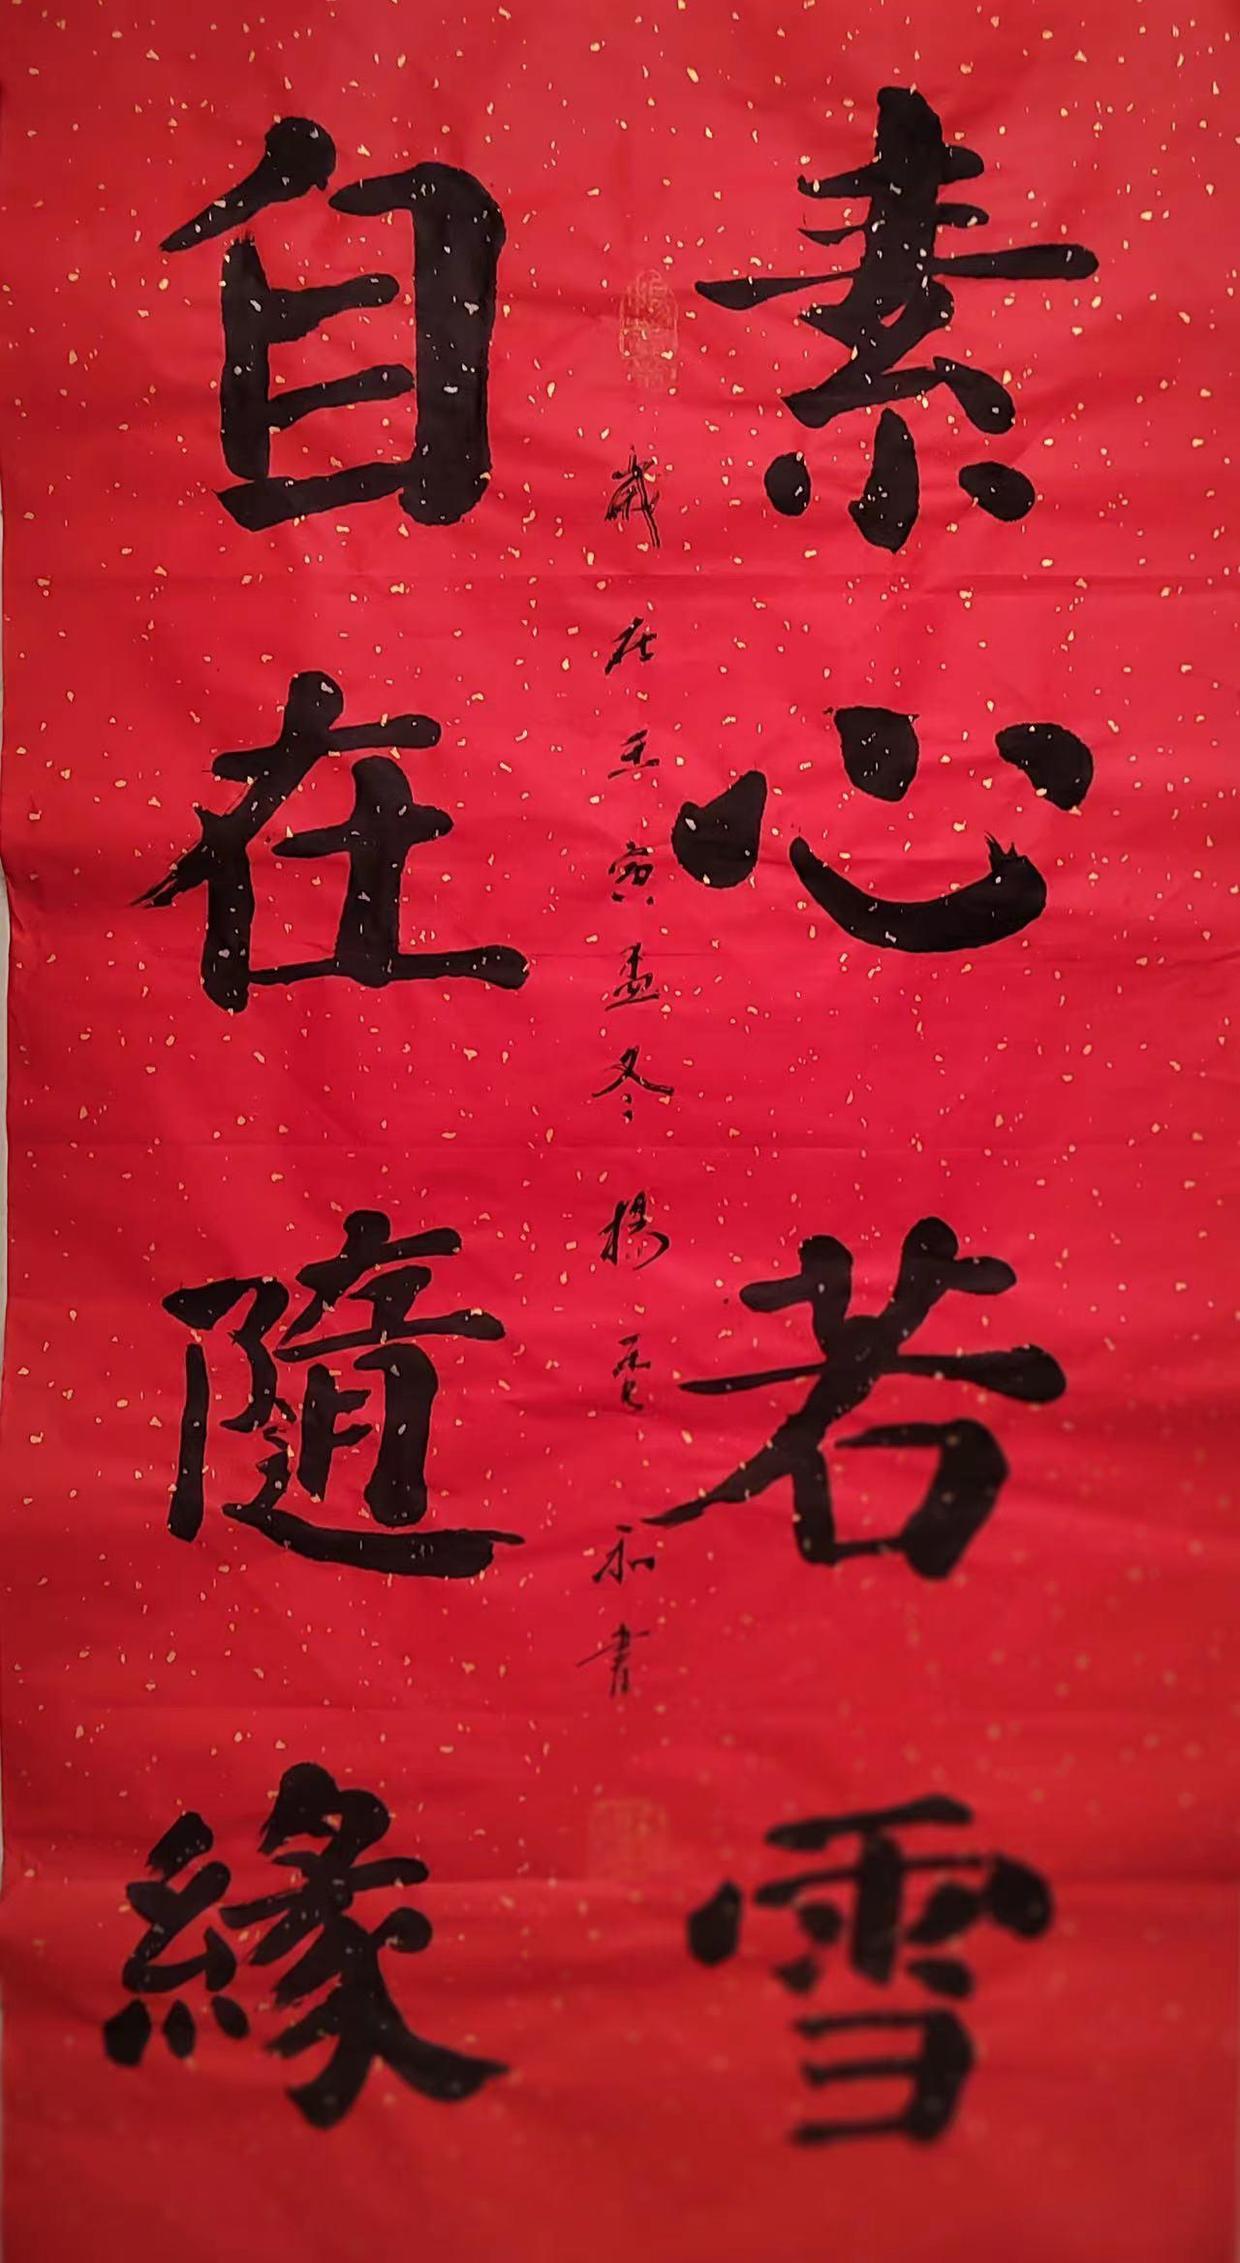 素心若雪
自在隨緣
歲在壬寅孟冬楊
和書